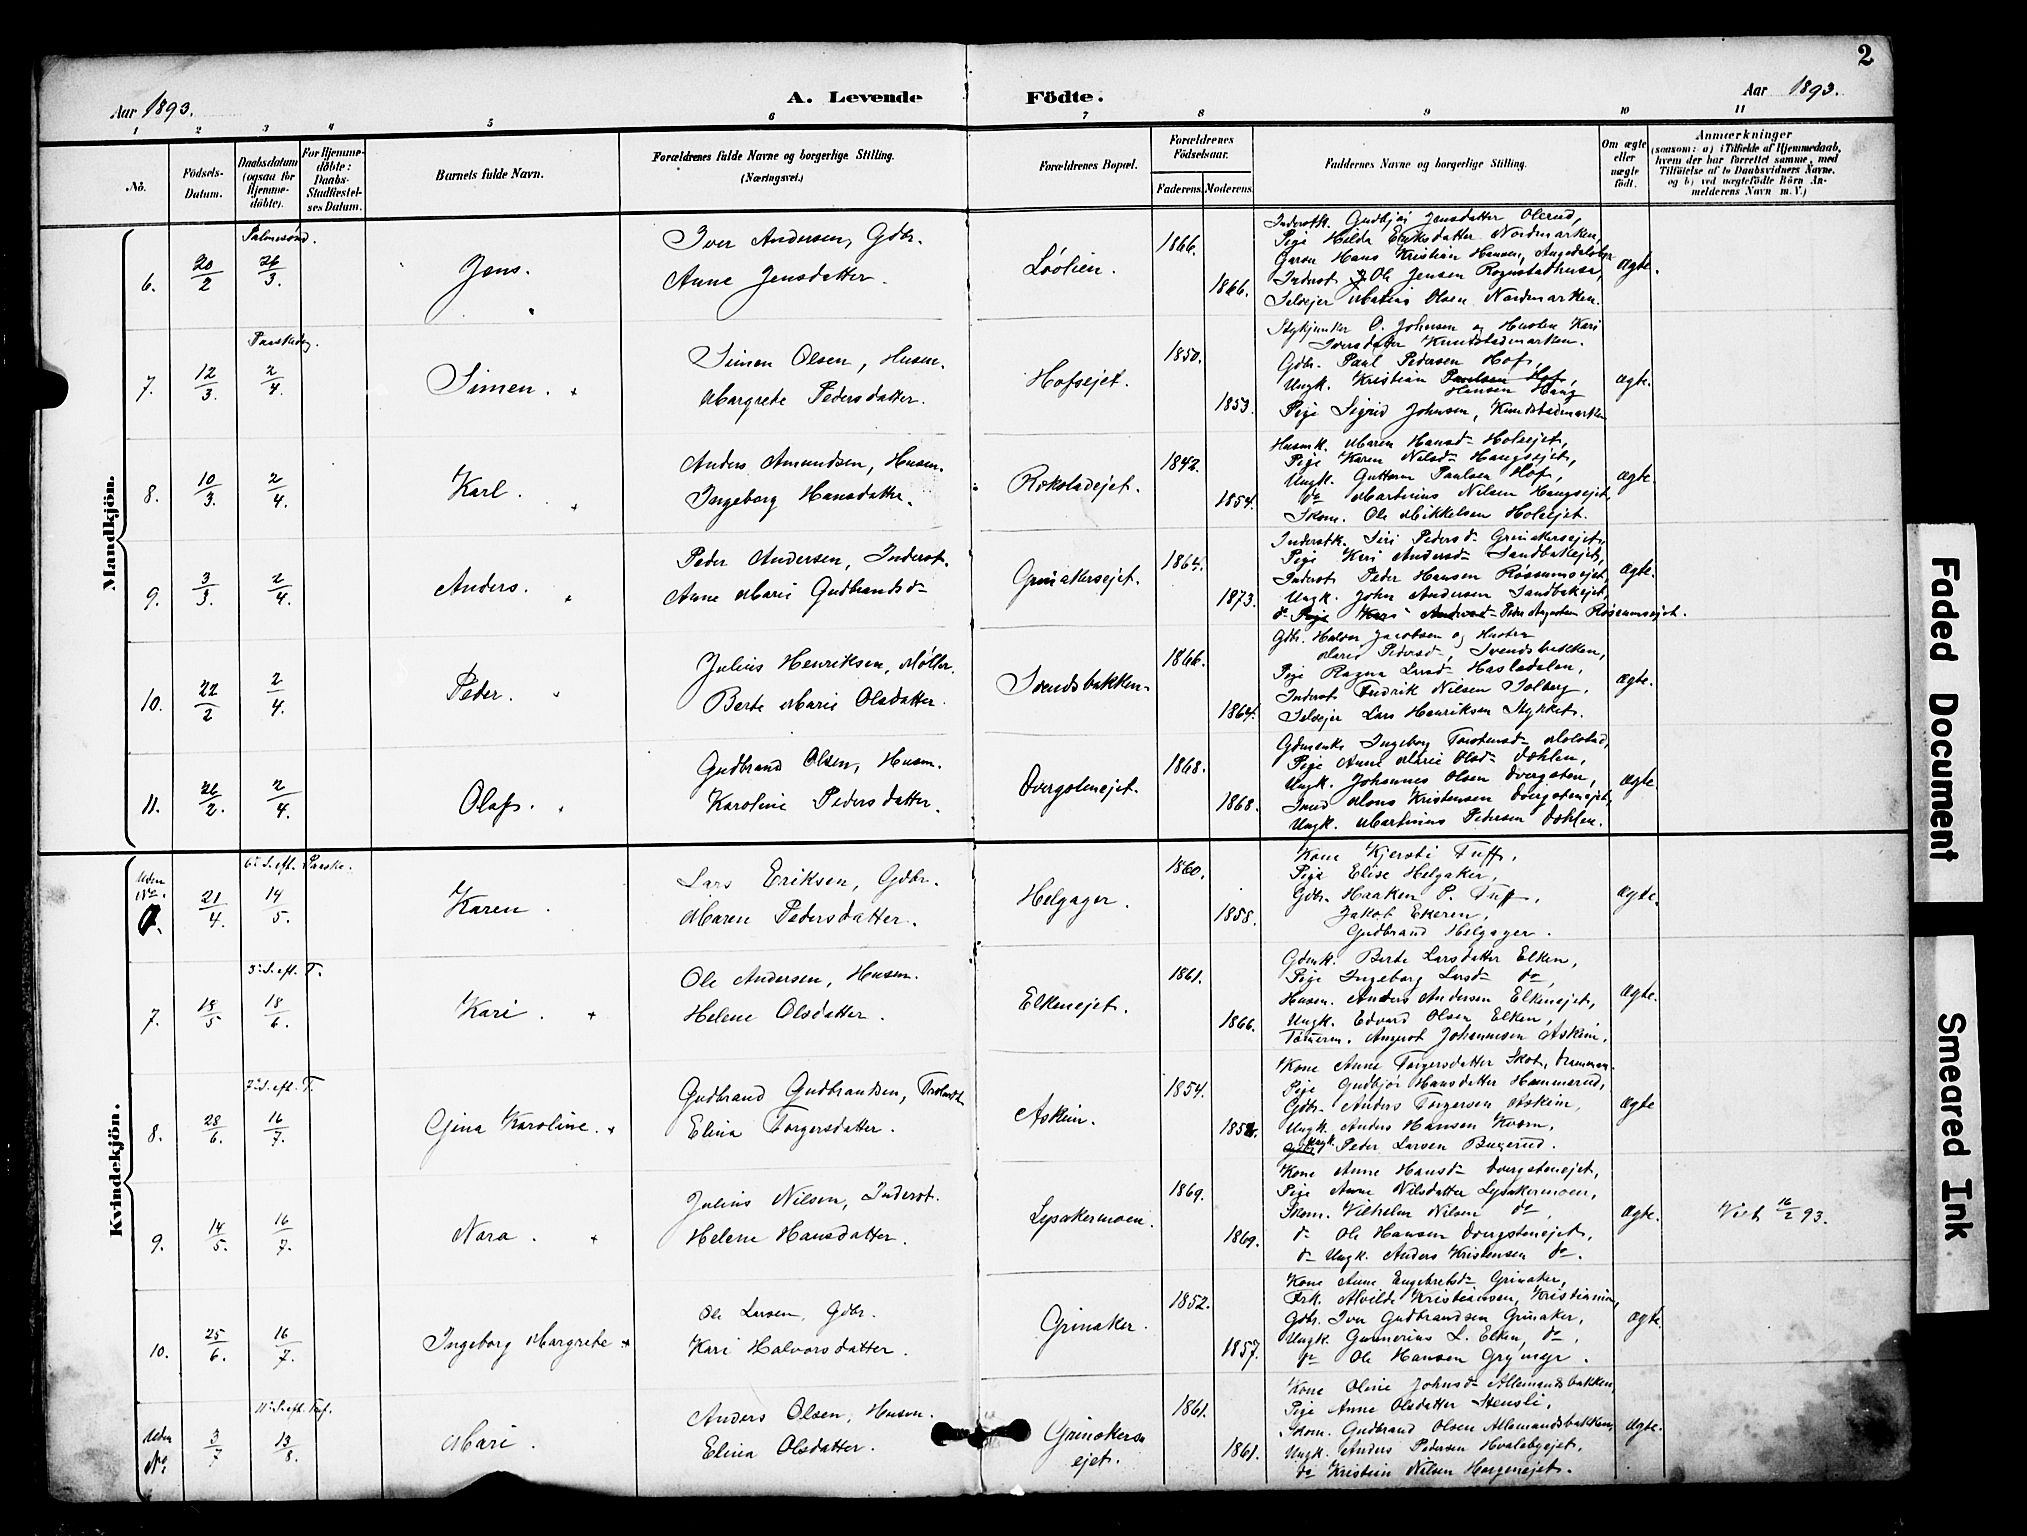 2
Aar 1893.
A. Levende Födte.
Aar 1893.
1 2 3 4 5 6 7 8 9 10 11
No.
Födsels-Datum.
Daabsdatum (ogsaa for Hjemmedöbte).
For Hjemmedöbte: Daabs-Stadfæstelses Datum.
Barnets fulde Navn.
Forældrenes fulde Navne og borgerlige Stilling.
(Næringsvei.)
Forældrenes Bopæl.
Forældrenes Födselsaar.
Faderens. Moderens.
Faddernes Navne og borgerlige Stilling.
Om ægte eller uægte födt.
Anmærkninger
(saasom: a) i Tilfælde af Hjemmedaab,
hvem der har forrettet samme, med
Tilföielse af to Daabsvidners Navne,
og b) ved uægtefödte Börn An-
melderens Navn m. V.)
Mandkjön.
Palmesönd.
6. 20/2 26/3. Jens.
Iver Andersen, Gdbr.
Anne Jensdatter.
Löolien. 1866. 1866.
Inderstk. Gudbjør Jensdatter Olerud,
Pige Hilda Eriksdatter Nordmarken,
Garver Hans Kristian Hansen,
Inderst Ole Jensen Rognstadhusa,
Selvejer Mathias Olsen Nordmarken.
Ægte.
Paaskedag.
7. 12/3. 2/4. Simen.
Simen Olsen, Husm.
Margrete Pedersdatter.
Hofsejet. 1850. 1853.
O. Johnsen og Hustru Kari
Iversdatter Knudstadmarken.
Gdbr. Paul Pedersen Hof,
Ungk. Kristian Paulsen Hof,
Hansen Haug
Pige Sigrid Johnsen, Knudstadmarken
Ægte.
8. 10/3. 2/4. Karl.
Anders Amundsen, Husm.
Ingeborg Hansdatter.
Rokoladejet. 1842. 1854.
Husmk. Maren Hansd- Holsejet,
Pige Karen Nilsd- Haugsejet,
Ungk. Guttorm Paulsen Hof,
do Martinius Nilsen Haugsejet,
Skom. Ole Mikkelsen Holsejet.
Ægte.
9. 3/3. 2/4. Anders.
Peder Andersen, Inderst.
Anne Marie Gudbrandsd-
Grinakersejet. 1864. 1873.
Inderstk. Siri Pedersd- Grinakersejet,
Pige Kari Andersd- Sandbakejet,
Inderst Peder Hansen Røssumsejet,
Ungk. John Andersen Sandbakejet,
do Pige Kari Andersd- Peder Augustsen Røssumsejet.
Ægte.
10. 22/2 2/4. Peder.
Julius Henriksen, Møller.
Berte Marie Olsdatter.
Svendsbakken. 1866. 1864.
Gdbr. Halvor Jacobsen og Hustru
Marie Pedersd-, Svendsbakken,
Pige Ragna Larsd- Hasladalen,
Inderst Fredrik Nilsen Solberg,
Selvejer Lars Henriksen Styrket.
Ægte.
11. 26/2. 2/4. Olaf.
Gudbrand Olsen, Husm.
Karoline Pedersdatter.
Dvergstenejet. 1868. 1868.
Gdmenk. Ingeborg Torstensd- Molstad,
Pige Anne Marie Olsd- Dæhlen,
Ungk. Johannes Olsen Dvergsten,
Mons Kristensen Dvergstenejet,
Ungk. Martinius Pedersen Dæhlen.
Ægte.
Kvindekjön.
6te S. eft. Paaske.
Uden No. 21/4. 14/5. Karen.
Lars Eriksen, Gdbr.
Maren Pedersdatter.
Helgager. 1860. 1858.
Kone Kjersti Tuff,
Pige Elise Helgaker,
Gdbr. Haaken P. Tuff,
Jakob Ekeren,
Gudbrand Helgager.
Ægte.
3. S. eft. T.
7. 15/5 18/6. Kari.
Ole Andersen, Husm.
Helene Olsdatter.
Elkenejet. 1861. 1866.
Gdmk. Berte Larsdatter Elken,
Pige Ingeborg Larsd- do,
Husm. Anders Andersen Elkenejet,
Ungk. Edvard Olsen Elken,
Tømerm. August Johannesen Askim.
Ægte.
7. S. eft. T.
8. 28/6. 16/7. Gina Karoline.
Gudbrand Gudbrandsen,
Elina Torgersdatter.
Askim. 1854. 1852.
Kone Anne Torgersdatter Skot, Drammen.
Pige Gudbjør Hansdatter Hammerud,
Gdbr. Anders Torgersen Askim,
Ungk. Anders Hansen Kværn,
Gdbr. Ungk. Peder Larsen Bugerud.
Ægte
9. 14/5. 16/7. Nora.
Julius Nilsen, Inderst.
Helene Hansdatter.
Lysakermoen. 1869. 1869.
Kone Anne Hansd- Dvergstenejet,
Pige Anne Nilsdatter Lysakermoen,
Skom. Vilhelm Nilsen do,
do Ole Hansen Dvergstenejet,
do Ungk. Anders Kristensen do.
Ægte.
Viet 16/2 93.
10. 25/6. 16/7. Ingeborg Margrete
Ole Larsen, Gdbr.
Kari Halvorsdatter.
Grinaker. 1852. 1857.
Kone Anne Engebretsd- Grinaker,
Frk. Alvilde Kristiansen, Kristiania,
Gdbr. Iver Gudbrandsen Grinaker,
Ungk. Gunnerius L. Elken, do,
do Ole Hansen Grymyr.
Ægte.
11te S. eft. Tref.
Uden No. 3/7 13/8. Mari.
Anders Olsen, Husm.
Elina Olsdatter.
Grinakers-
ejet. 1861. 1861.
Kone Oline Johnsd- Allemandsbakken,
Pige Anne Olsdatter Stensli,
Skom. Gudbrand Olsen Allemandsbakken,
Ungk. Anders Pedersen Hvalebyejet,
do Kristian Nilsen Horgenejet.
Ægte.
Faded Document
Smeared Ink